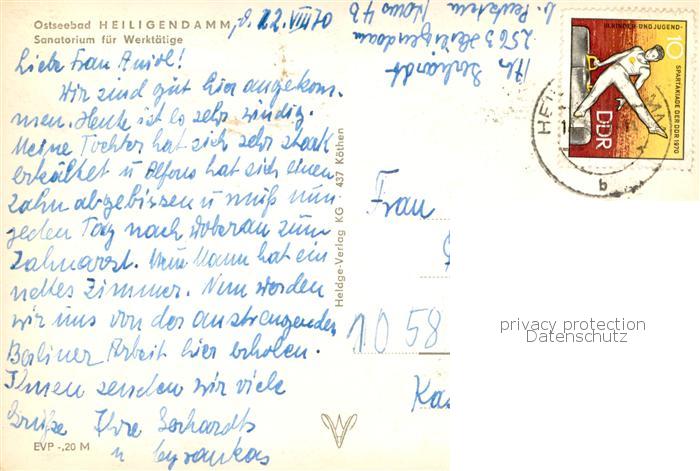 Ostseebad HEILIGENDAMM, d. 12.VIII 70
Sanatorium für Werktätige
Liebe Frau
Wir sind gut hier angekom-
men. Heute ist es sehr windig.
Meine Tochter hat sich sehr stark
erkältet u Alfons hat sich einen
Zahn abgebissen u muß nun
jeden Tag nach Doberan zum
Zahnarzt. Mein Mann hat ein
nettes Zimmer. Nun werden
wir uns von der anstrengenden
Berliner Arbeit hier erholen.
Ihnen senden wir viele
Grüße Ihre Gerhardts
u
EVP -,20 M
Heldge-Verlag KG · 437 Köthen
Gerhardt
2563 Heiligendamm
b.
KINDER- UND JUGEND-
SPARTAKIADE DER DDR 1970
10
DDR
b
Frau
1058
privacy protection
Datenschutz